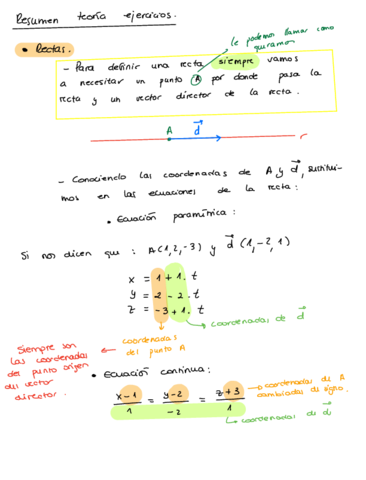 Resumen teoría ejercicios.
• Rectas.
le podemos llamar como
queramos
- Para definir una recta siempre vamos
a necesitar un punto A por donde pasa la
recta y un vector director de la recta.
A d r
- Conociendo las coordenadas de A y d, sustitui-
mos en las ecuaciones de la recta:
• Ecuación paramétrica:
Si nos dicen que: A(1,2,-3) y d(1,-2,1)
x = 1 + 1. t
y = 2 - 2. t
z = -3 + 1. t
coordenadas de d
coordenadas
del punto A
Siempre son
las coordenadas
del punto origen
del vector
director.
• Ecuación continua:
x-1 / 1 = y-2 / -2 = z+3 / 1
coordenadas de A
cambiadas de signo.
coordenadas de d